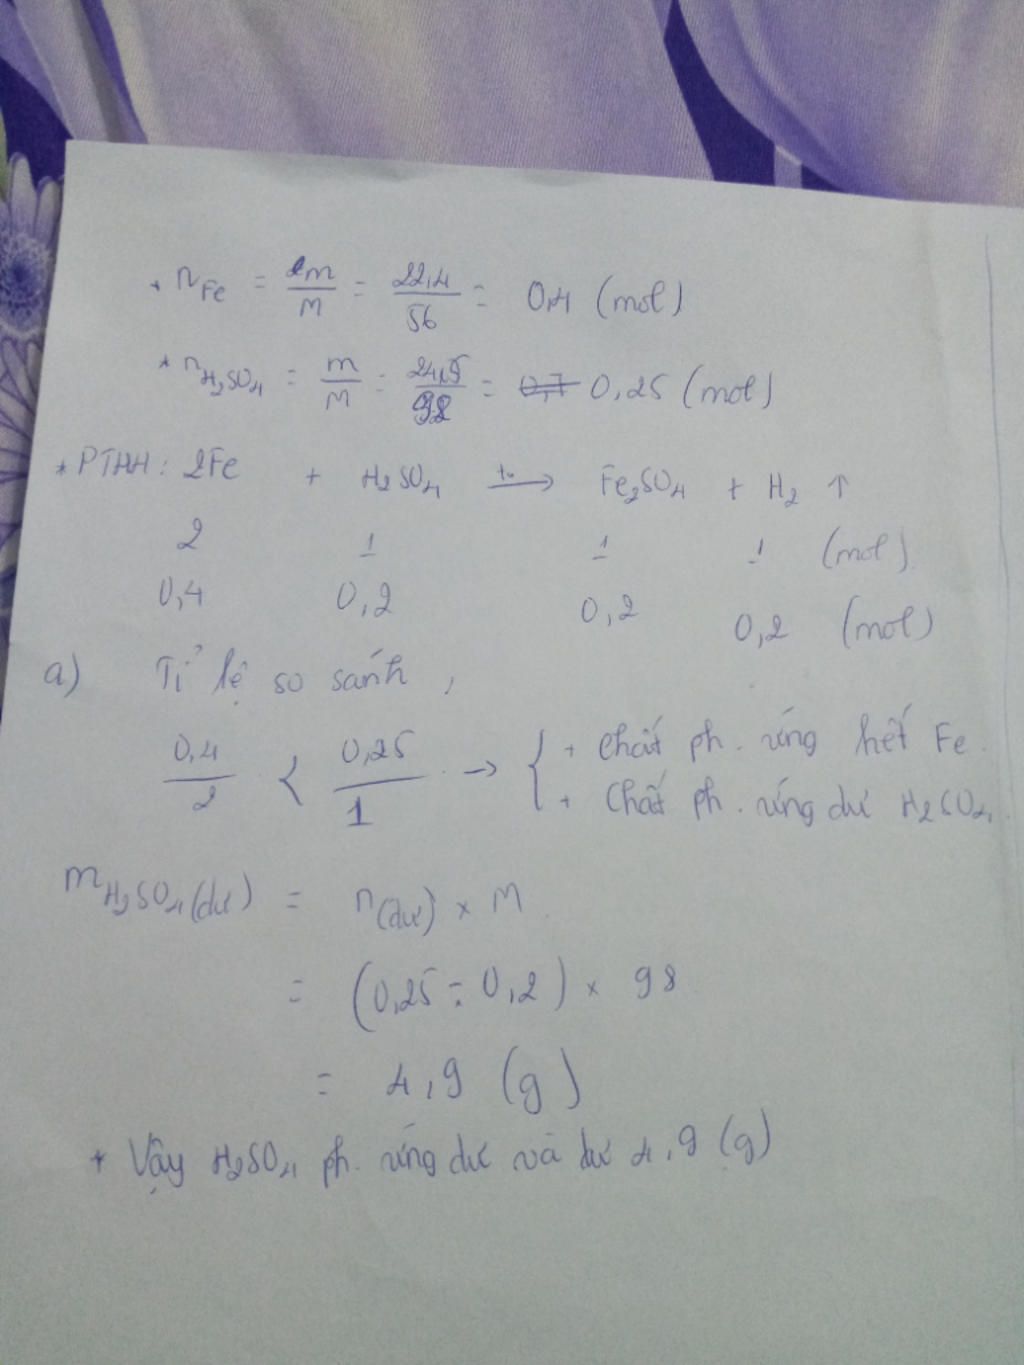 * nFe = m/M = 22,4/56 = 0,4 (mol)
* nH₂SO₄ = m/M = 24,5/98 = 0,25 (mol)
* PTHH: 2Fe + H₂SO₄ –t°→ Fe₂SO₄ + H₂ ↑
2 1 1 1 (mol)
0,4 0,2 0,2 0,2 (mol)
a) Tỉ lệ so sánh,
0,4/2 < 0,25/1 → { + Chất ph. ứng hết Fe.
+ Chất ph. ứng dư H₂SO₄.
mH₂SO₄(dư) = n(dư) × M
= (0,25 - 0,2) × 98
= 4,9 (g)
* Vậy H₂SO₄ ph. ứng dư và dư 4,9 (g)